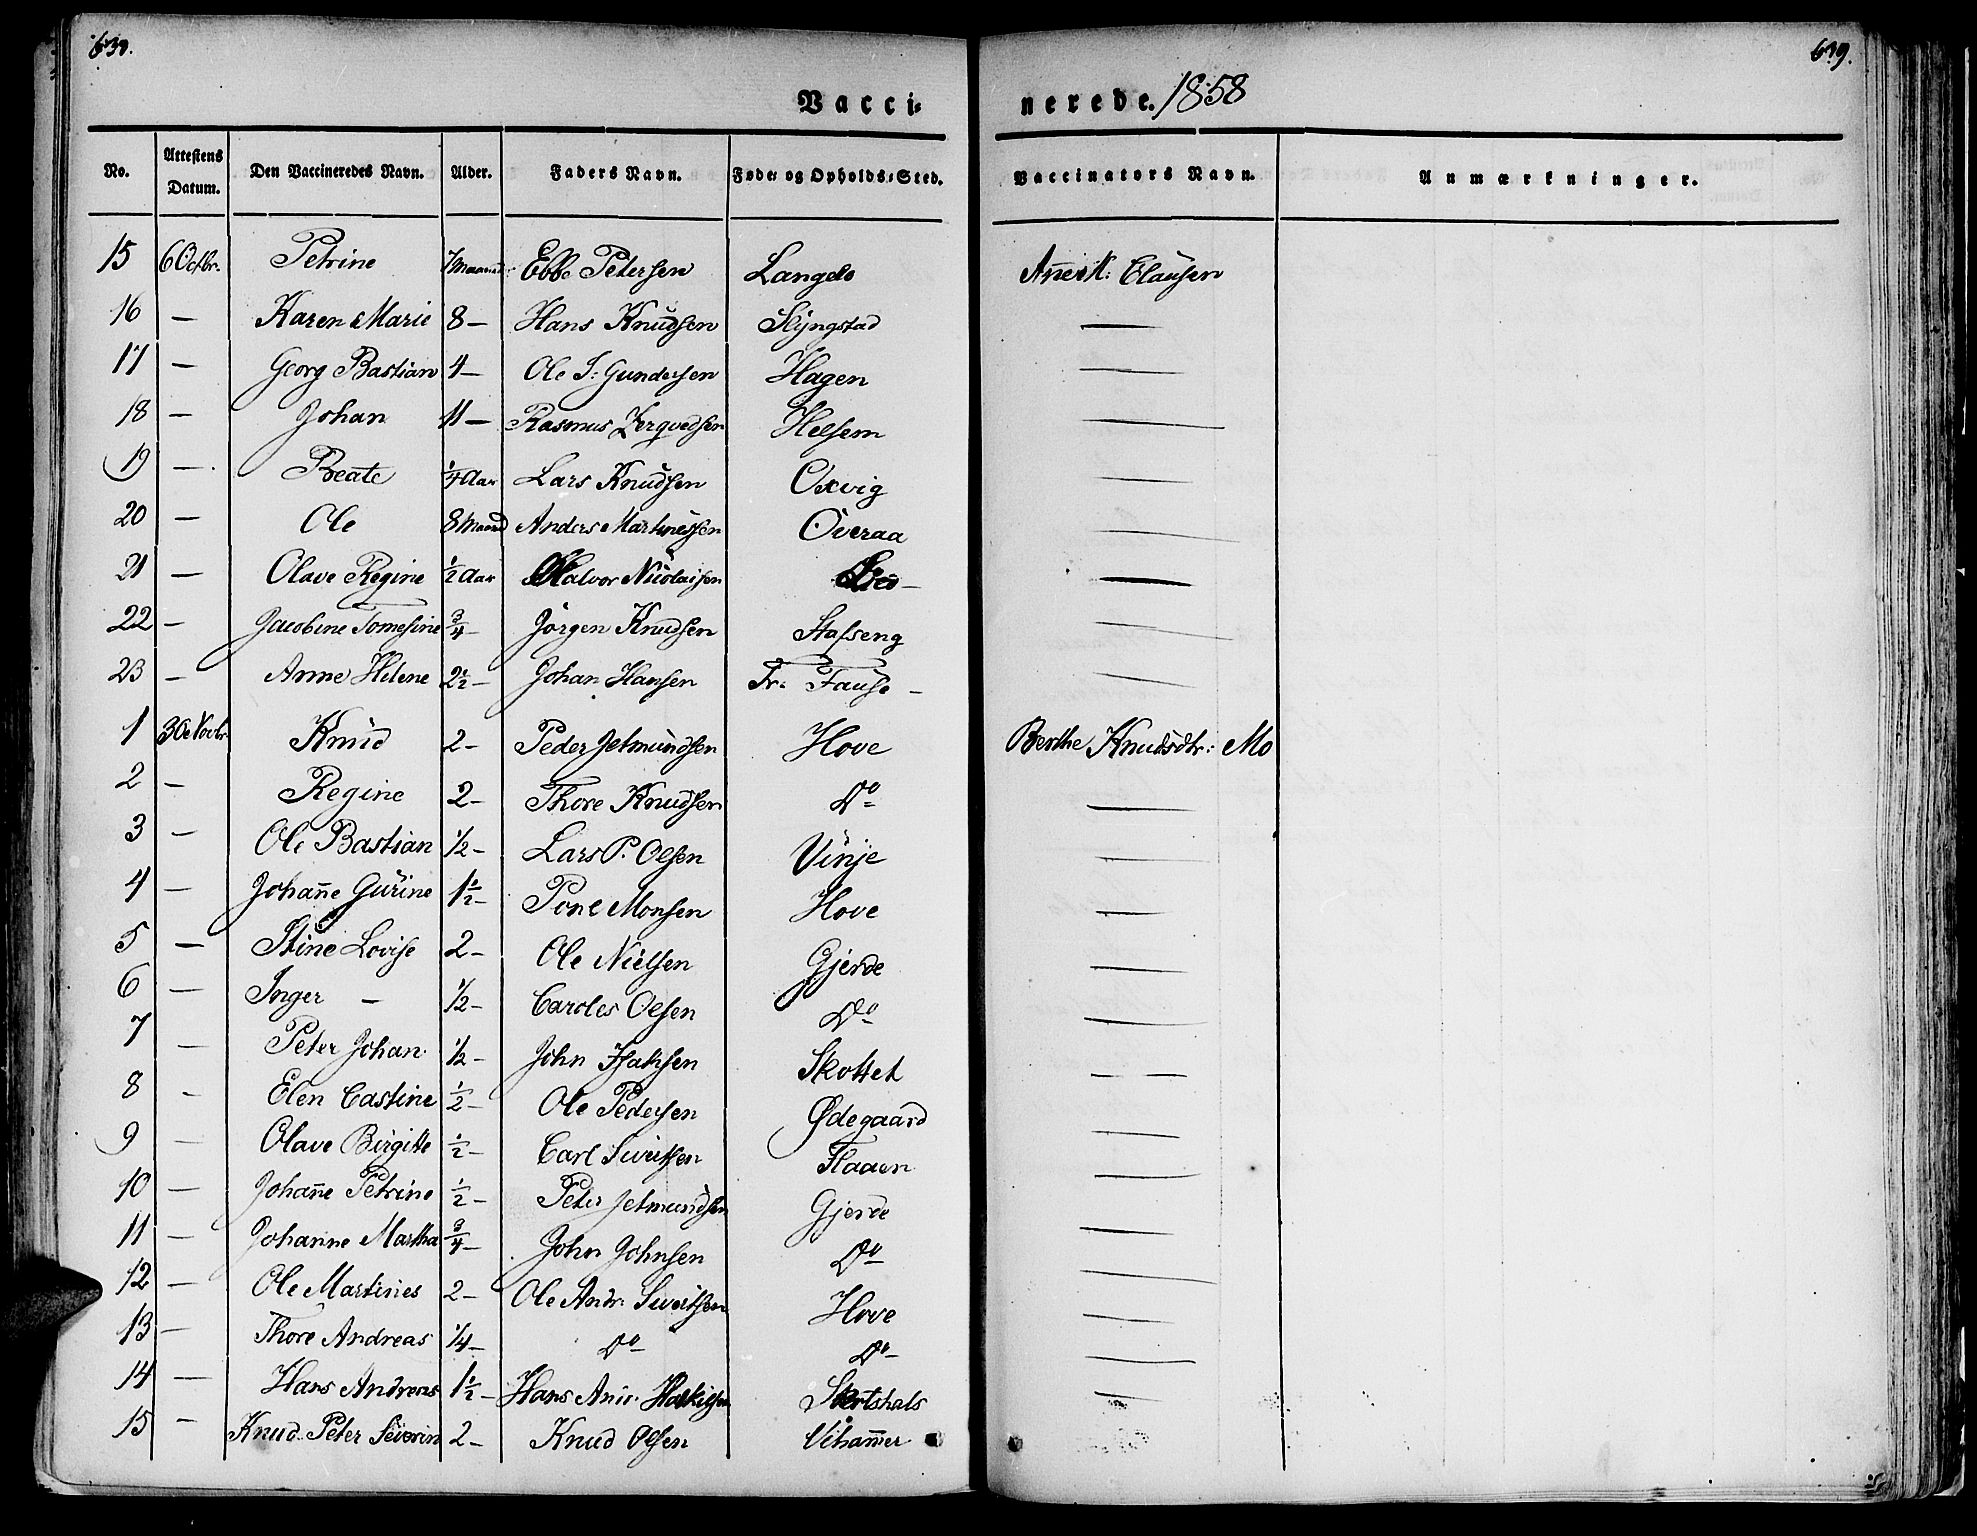 639.
Vacci-
nerede. 1858
No. Attestens Datum. Den Vaccineredes Navn. Alder. Faders Navn. Føde- og Opholds-Sted. Vaccinators Navn. Anmærkninger.
15 6 Octbr. Petrine 7 Maaned Ebbe Petersen Langelo Clausen
16 — Karen Marie 8 — Hans Knudsen Slyngstad —
17 — Georg Bastian 4 — Ole I: Gundersen Hagen —
18 — Johan 11 — Rasmus Helsem —
19 — Beate 1/4 Aar Lars Knudsen Oxvig —
20 — Ole 8 Maaned Anders Martinussen Överaa —
21 — Olave Regine 1/2 Aar Halvor Nicolaisen —
22 — Jacobine Tomesine 3/4 — Jörgen Knudsen Stafseng —
23 — Anne Helene 2 1/2 — Johan Hansen Fr: Fause — —
1 30 Novbr. Knud 2 — Peder Jetmundsen Hove Berthe Knudsdtr: Mo
2 — Regine 2 — Thore Knudsen Do —
3 — Ole Bastian 1/2 — Lars P. Olsen Vinje —
4 — Johan̄e Gurine 1 1/2 — Pone Monsen Hove —
5 — Stine Lovise 2 — Ole Nielsen Gjerde —
6 — Inger — 1/2 — Caroles Olsen Do —
7 — Peter Johan 1/2 — John Skottet —
8 — Elen Castine 1/2 — Ole Pedersen Ødegaard —
9 — Olave Birgitte 1/2 — Carl Sivertsen Flaaen —
10 — Johan̄e Petrine 1/2 — Peter Jetmundsen Gjerde —
11 — Johanne Martha 3/4 — John Johnsen Do —
12 — Ole Martines 2 — Ole Andr: Sivertsen Hove —
13 — Thore Andreas 1/4 — Do Do —
14 — Hans Andreas 1 1/2 — Hans —
15 — Knud Peter Severin 2 — Knud Olsen Viham̄er